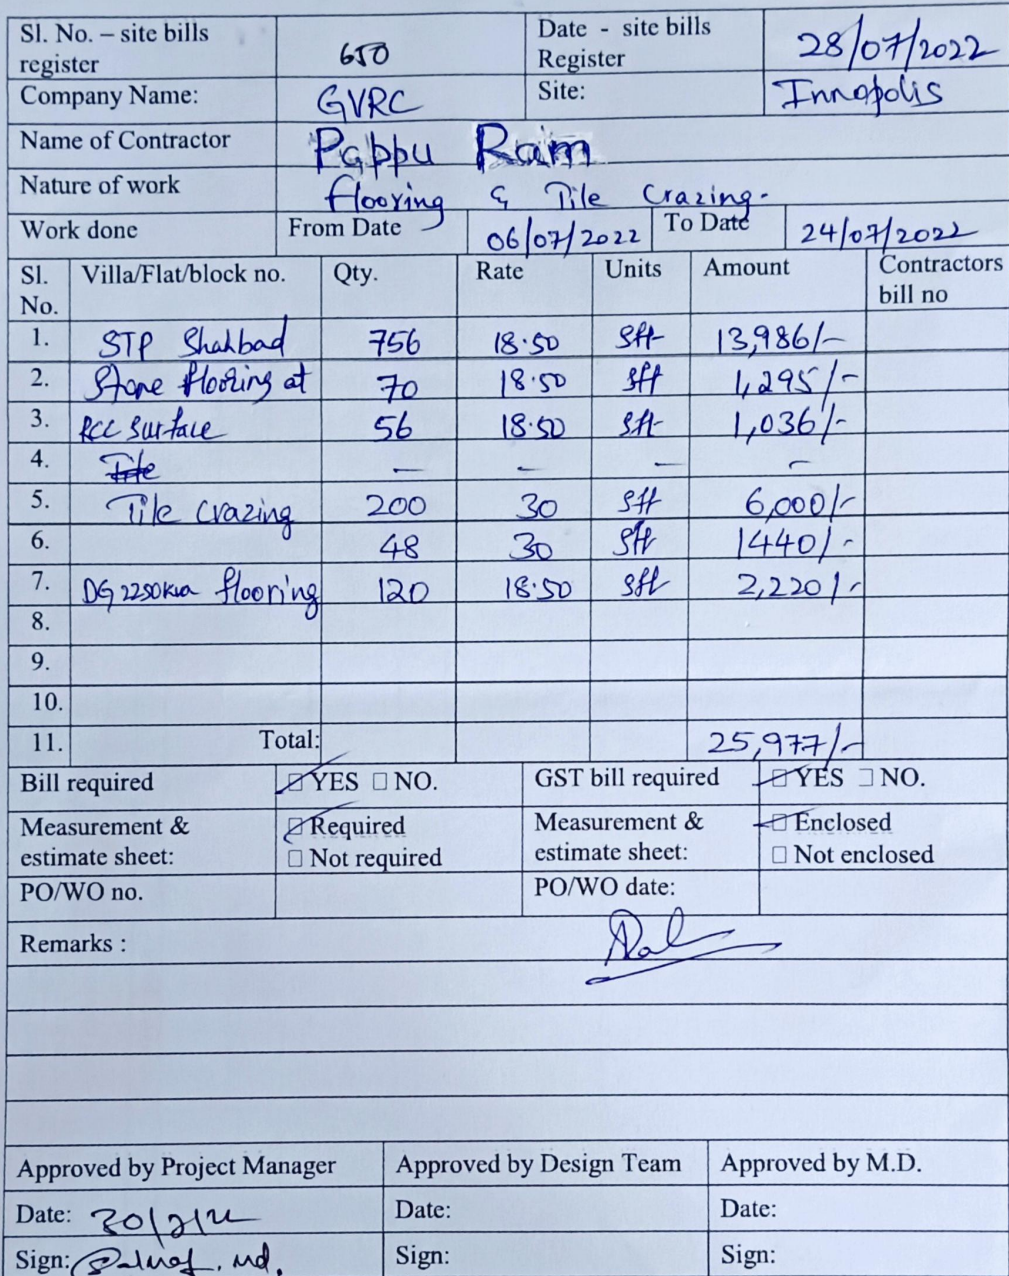 Sl. No. – site bills register 650 Date - site bills Register 28/07/2022
Company Name: GVRC Site: Innopolis
Name of Contractor Pappu Ram
Nature of work flooring & Tile Crazing.
Work done From Date 06/07/2022 To Date 24/07/2022
Sl. No. Villa/Flat/block no. Qty. Rate Units Amount Contractors bill no
1. STP Shahbad 756 18.50 Sft 13,986/-
2. Stone flooring at 70 18.50 sft 1,295/-
3. RCC surface 56 18.50 sft 1,036/-
4. Tile — – – –
5. Tile crazing 200 30 sft 6,000/-
6. 48 30 sft 1440/-
7. DG 2250kva flooring 120 18.50 sft 2,220/-
8.
9.
10.
11. Total: 25,977/-
Bill required □ YES □ NO. GST bill required □ YES □ NO.
Measurement & estimate sheet: □ Required □ Not required Measurement & estimate sheet: □ Enclosed □ Not enclosed
PO/WO no. PO/WO date:
Remarks :
Approved by Project Manager Approved by Design Team Approved by M.D.
Date: Date: Date:
Sign: Sign: Sign: